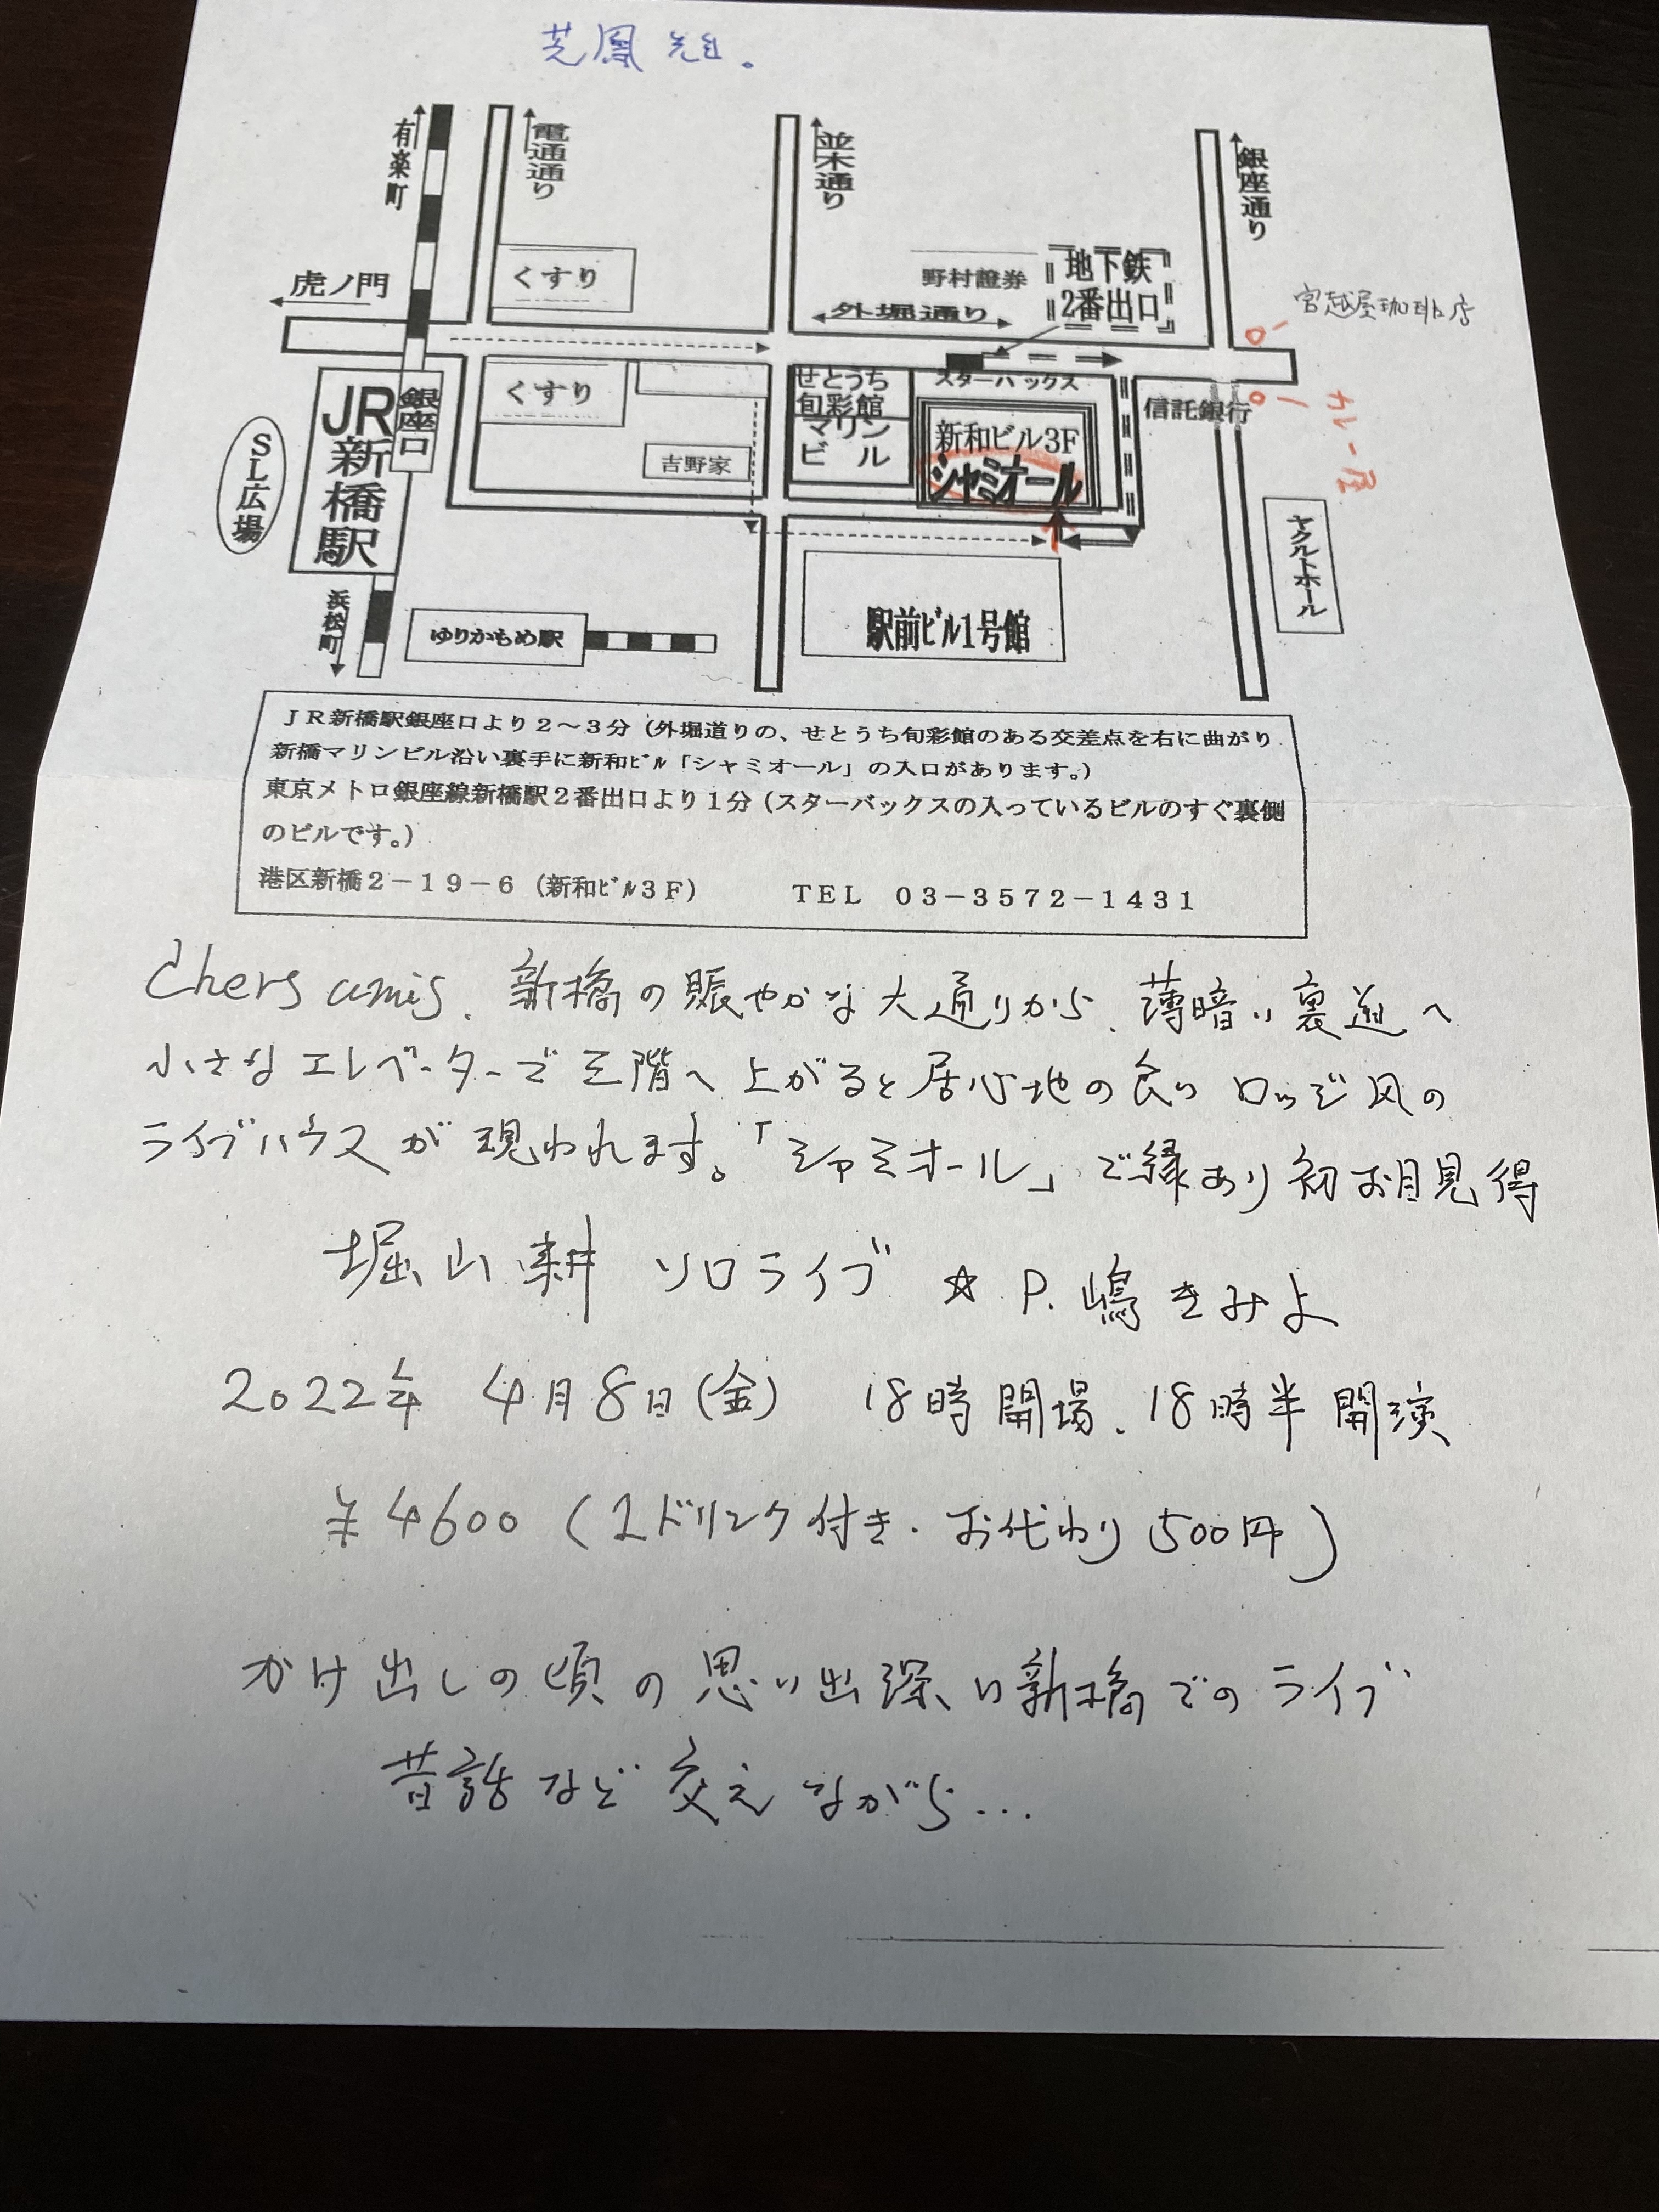 芝鳳 先生。
有楽町
電通通り
並木通り
銀座通り
虎ノ門
くすり
野村證券
地下鉄
2番出口
外堀通り
宮越屋珈琲店
カレー屋
くすり
せとうち
旬彩館
マリン
ビル
スターバックス
新和ビル3F
シャミオール
信託銀行
JR新橋駅
銀座口
SL広場
吉野家
ヤクルトホール
浜松町
ゆりかもめ駅
駅前ビル1号館
JR新橋駅銀座口より2～3分(外堀道りの、せとうち旬彩館のある交差点を右に曲がり
新橋マリンビル沿い裏手に新和ビル「シャミオール」の入口があります。)
東京メトロ銀座線新橋駅2番出口より1分(スターバックスの入っているビルのすぐ裏側
のビルです。)
港区新橋2－19－6(新和ビル3F) TEL 03－3572－1431
Chers amis、新橋の賑やかな大通りから、薄暗い裏道へ
小さなエレベーターで三階へ上がると居心地の良い ロッジ風の
ライブハウスが現われます。「シャミオール」で縁あり初お目見得
堀山耕 ソロライブ ☆ P. 嶋きみよ
2022年 4月8日(金) 18時開場、18時半開演
¥4600 (1ドリンク付き・お代わり500円)
かけ出しの頃の思い出深い新橋でのライブ
昔話など交えながら...